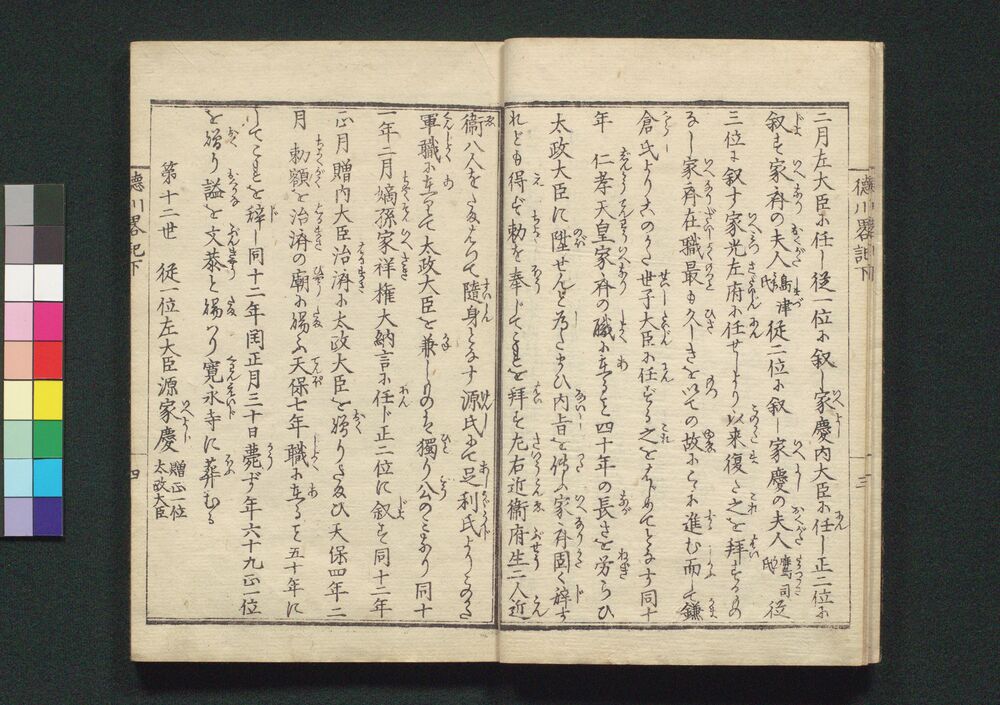 二月左大臣に任し従一位に叙し家慶内大臣に任し正二位に
叙す家斉の夫人島津氏従二位に叙し家慶の夫人鷹司氏従
三位に叙す家光左府に任せしより以来復た之を拝する者
なし家斉在職最も久しきを以ての故にこゝに進む而して鎌
倉氏よりこのかた世子大臣に任ずる之をはじめとなす同十
年 仁孝天皇家斉の職に在ること四十年の長きを労らひ
太政大臣に陞せんと為たまひ内旨を伝ふ家斉固く辞す
れども得ず勅を奉じてこれを拝す左右近衛府生二人近
衛八人をたまはりて随身となす源氏にて足利氏よりこのかた
軍職に在りて太政大臣を兼しものは独り公のみなり同十
一年二月嫡孫家祥権大納言に任ト正二位に叙す同十二年
正月贈内大臣治済に太政大臣を贈りたまひ天保四年二
月 勅額を治済の廟に賜ふ天保七年職に在ること五十年に
してこれを辞し同十二年閏正月三十日薨ず年六十九正一位
を贈り諡を文恭と賜わり寛永寺に葬むる
第十二世 従一位左大臣源家慶 贈正一位太政大臣
徳川畧記下
三
徳川畧記下
四